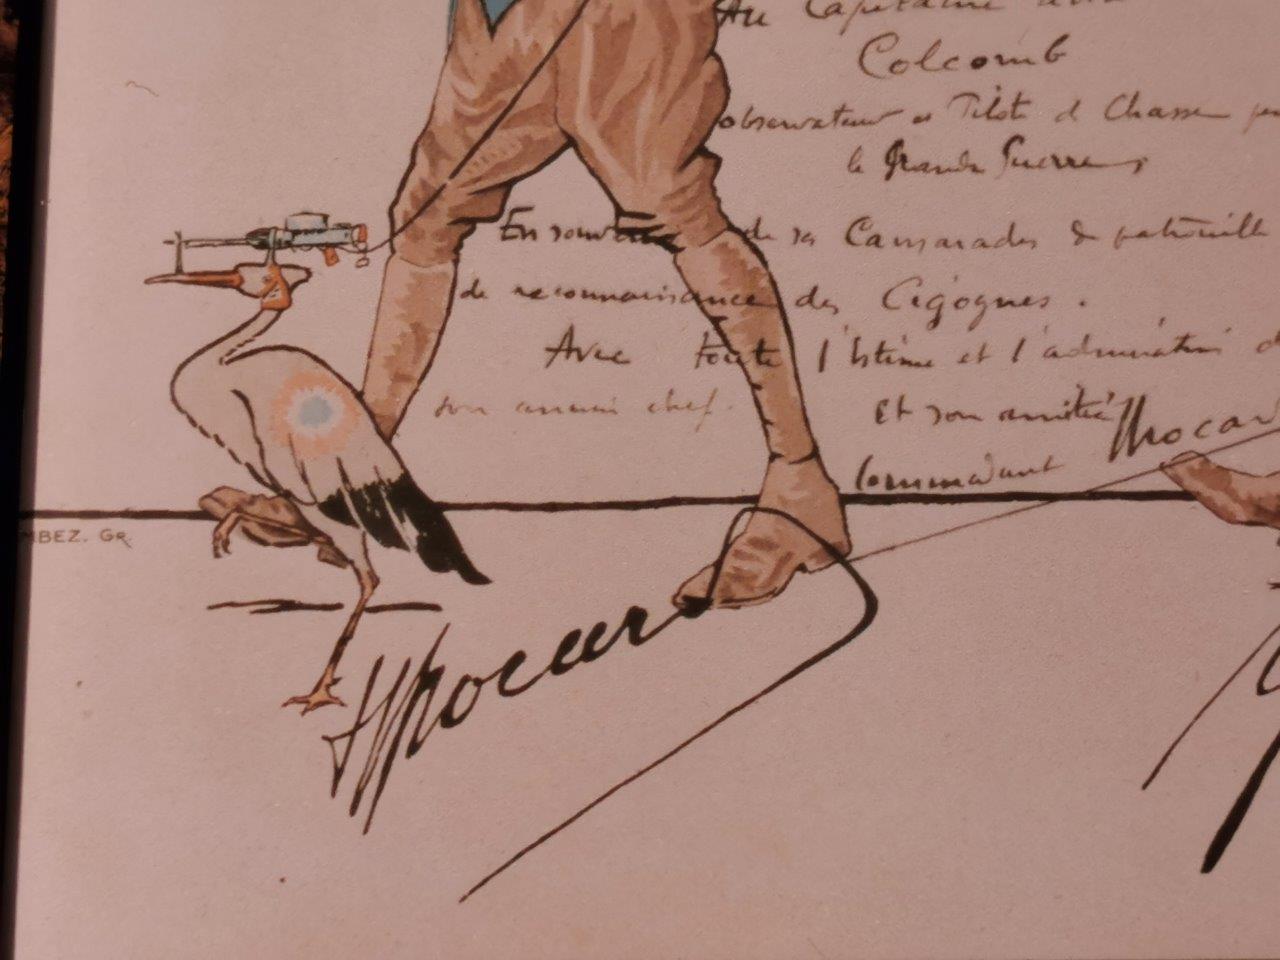 Au Capitaine
Colcomb
observateur et Pilote de Chasse
la Grande Guerre,
En souvenir de ses Camarades de patrouille
de reconnaissance des Cigognes.
Avec toute l'estime et l'admiration
son ancien chef. Et son amitié
Commandant Brocard
MBEZ. Gr.
Brocard